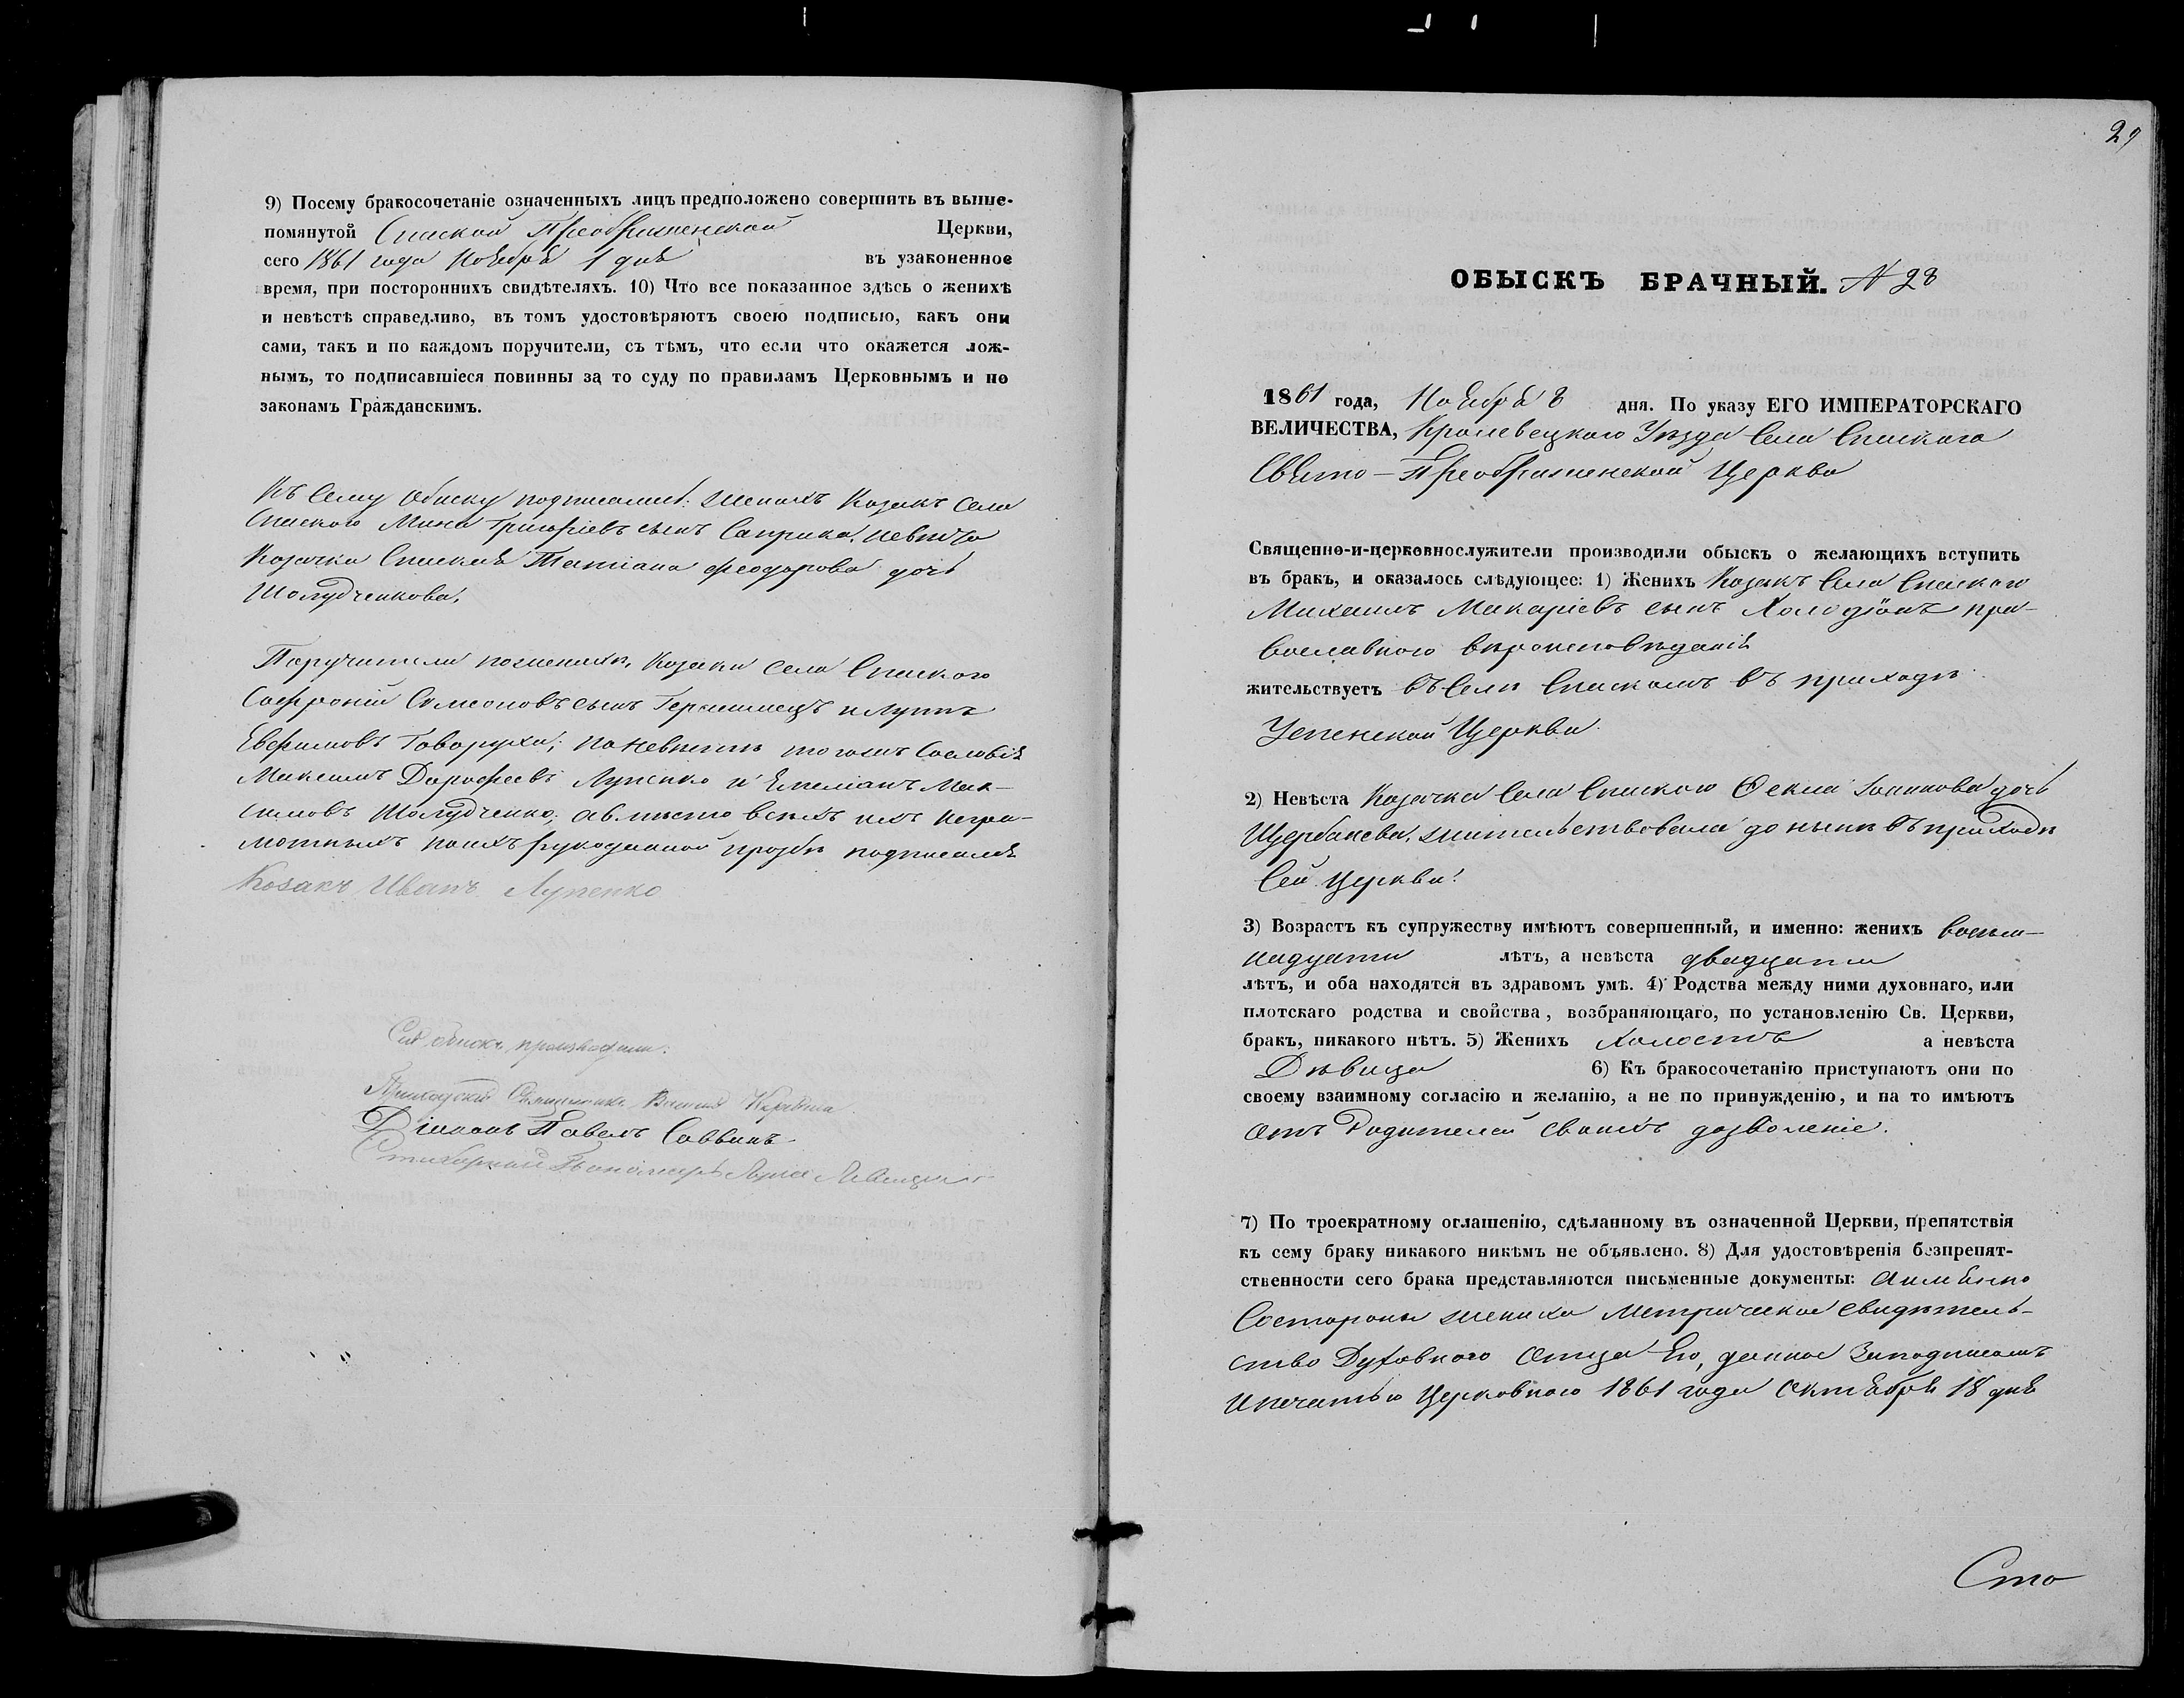 9) Посему бракосочетаніе означенныхъ лицъ предположено совершить въ выше-
помянутой Спаской Преображенской Церкви,
сего 1861 года Ноября 1 дня въ узаконенное
время, при постороннихъ свидѣтеляхъ. 10) Что все показанное здѣсь о женихѣ
и невѣстѣ справедливо, въ томъ удостовѣряютъ своею подписью, какъ они
сами, такъ и по каждомъ поручители, съ тѣмъ, что если что окажется лож-
нымъ, то подписавшіеся повинны за то суду по правиламъ Церковнымъ и по
законамъ Гражданскимъ.
Къ сему обыску подписались: женихъ Козакъ села
Спаского Мина Григоріевъ сынъ Саприка, невѣста
Козачка Спаская Татіана Феодорова дочь
Шолудченкова.
Поручители по женихѣ, Козаки села Спаского
Софроній Симеоновъ сынъ Герасимецъ и Луппъ
Евфимовъ Говоруха; по невѣстѣ того же Сословія
Максимъ Дорофеевъ Лупенко и Емеліанъ Мак-
симовъ Шолудченко, а вмѣсто всѣхъ ихъ негра-
мотныхъ по ихъ рукоданной прозбѣ подписался
Козакъ Иванъ Лупенко
Сей обыскъ производили:
Приходскій Священникъ
Діаконъ Павелъ Саввинъ
Стихарный Пономарь Лука Левицкій
29
ОБЫСКЪ БРАЧНЫЙ. N 28
1861 года, Ноября 8 дня. По указу ЕГО ИМПЕРАТОРСКАГО
ВЕЛИЧЕСТВА, Кролевецкого Уѣзда Села Спаского
Свято-Преображенской Церкви
Священно-и-церковнослужители производили обыскъ о желающихъ вступить
въ бракъ, и оказалось слѣдующее: 1) Женихъ Козакъ Села Спаского
Михаилъ Макаріевъ сынъ Холодіонъ пра-
вославного вѣроисповѣданія
жительствуетъ въ Селѣ Спаскомъ въ приходѣ
Успенской Церкви.
2) Невѣста Козачка Села Спаского Фекла Іоаникова дочь
Щербакева, жительствовала до нынѣ въ приходѣ
Сей Церкви.
3) Возрастъ къ супружеству имѣютъ совершенный, и именно: женихъ восьм-
надцати лѣтъ, а невѣста двадцати
лѣтъ, и оба находятся въ здравомъ умѣ. 4) Родства между ними духовнаго, или
плотскаго родства и свойства, возбраняющаго, по установленію Св. Церкви,
бракъ, никакого нѣтъ. 5) Женихъ Холостъ а невѣста
Дѣвица 6) Къ бракосочетанію приступаютъ они по
своему взаимному согласію и желанію, а не по принужденію, и на то имѣютъ
отъ Родителей своихъ дозволеніе.
7) По троекратному оглашенію, сдѣланному въ означенной Церкви, препятствія
къ сему браку никакого никѣмъ не объявлено. 8) Для удостовѣренія безпрепят-
ственности сего брака представляются письменные документы: аименно
Состороны жениха Метрическое свидѣтель-
ство Духовного Отца Его, данное Заподписомъ
ипечатью Церковного 1861 года Октября 18 дня
Сто